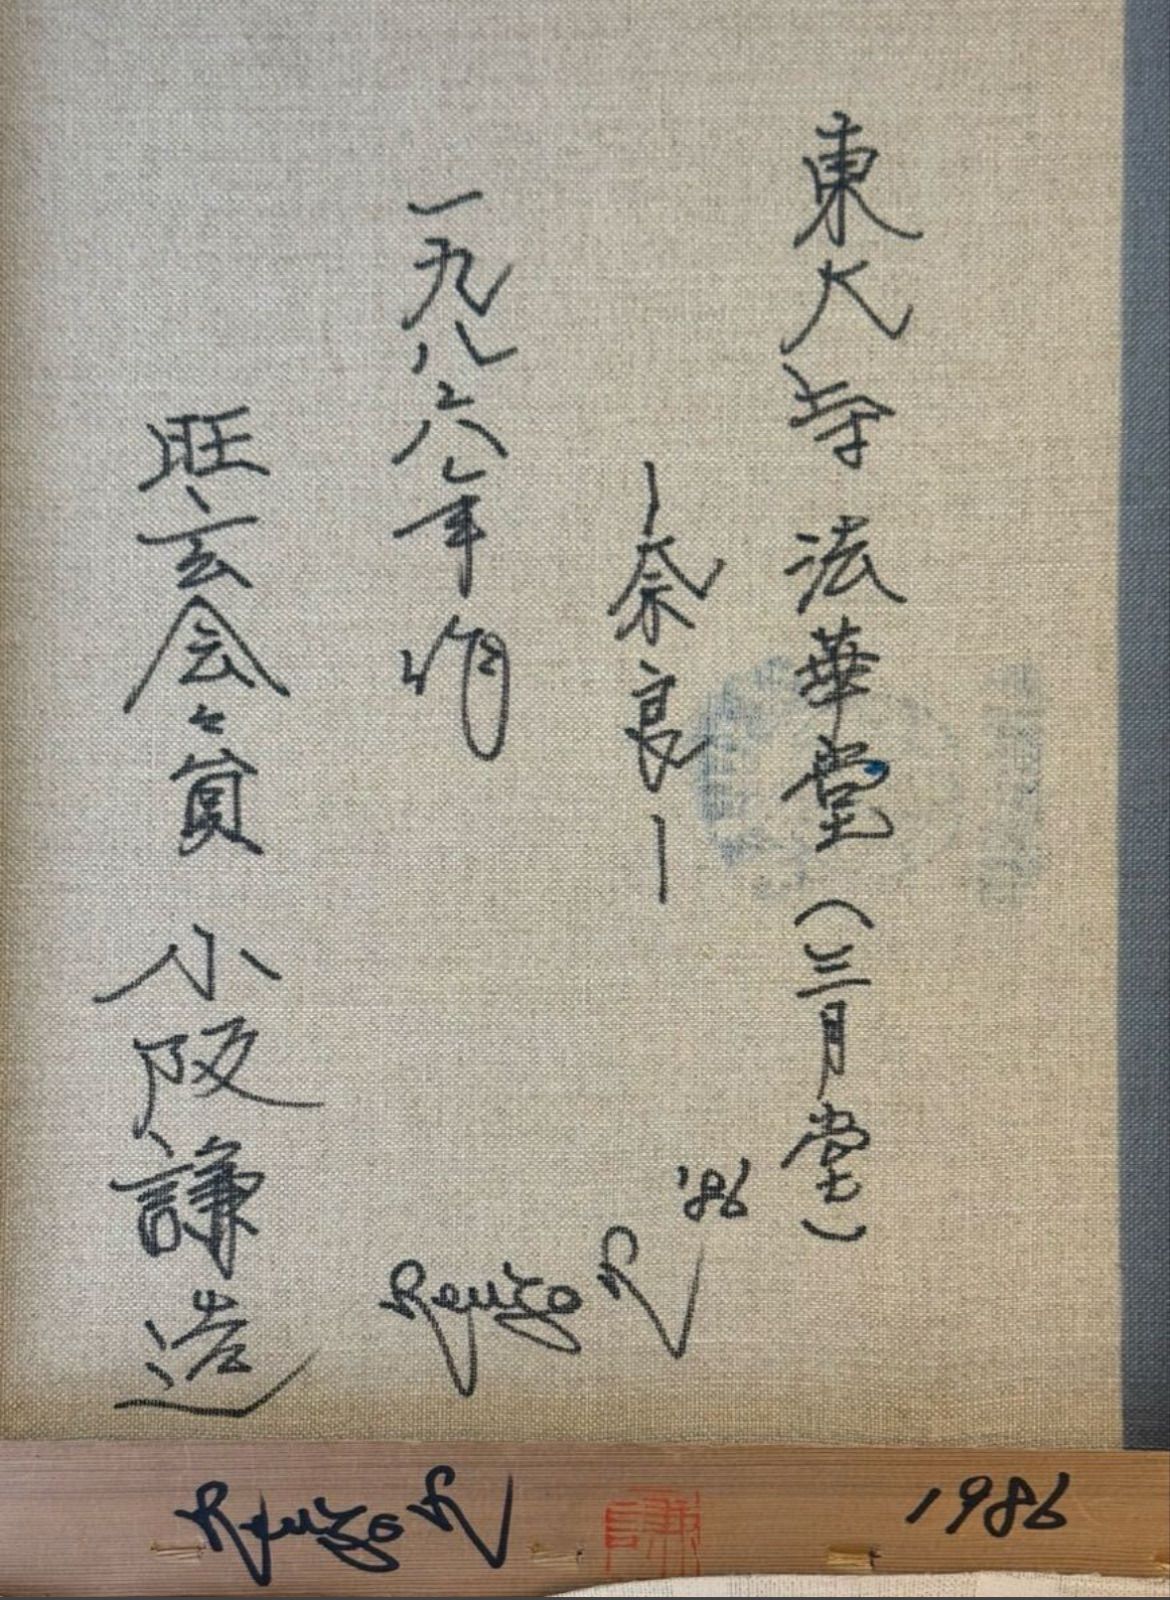 東大寺 法華堂（三月堂）
―奈良―
一九八六年作
旺玄会々員 小阪謙造
'86
1986
謙